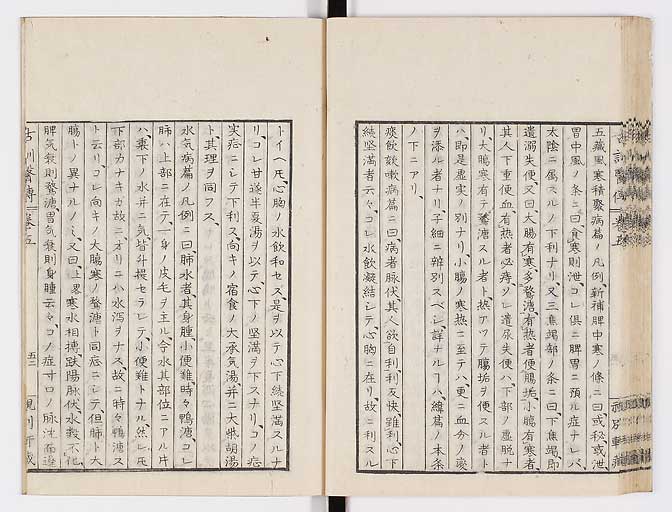 五藏風寒積聚病篇ノ凡例、新補脾中寒ノ條ニ曰或秘或泄
胃中風ノ条ニ曰食寒則泄コレ倶ニ脾胃ニ預ル症ナレバ
太陰ニ属スルノ下利ナリ又三焦竭部ノ条ニ曰下焦竭即
遺溺失便又曰大腸有寒多鶩溏有熱者便腸垢小腸有寒者
其人下重便血有熱者必痔
リ大腸寒有テ鶩溏スル者ト、熱アツテ腸垢ヲ便スル者ト
ハ即是虚実ノ別ナリ、小腸ノ寒熱ニ至テハ、更ニ血分ノ
ヲ添ル者ナリ子細ニ辨別スベシ、詳ナルヿハ
ノ下ニアリ、
痰飲欬嗽病篇ニ曰、病者脉伏其人欲自利利反快雖利心下
続堅満者云々、コレ水飲凝結シテ心胸ニ在リ、故ニ利スル
トイヘ𪜈、心胸ノ水飲和セズ、是ヲ以テ心下続堅満スルナ
リ、コレ甘遂半夏湯ヲ以テ心下ノ堅満ヲ下スナリ、コノ症
実症ニシテ下利ス、向キノ宿食ノ大承気湯、并ニ大柴胡湯
ト、其理ヲ同フス、
水気病篇ノ凡例ニ曰肺水者其身腫小便難、時々鴨溏コレ
肺ハ上部ニ在テ、一身ノ皮毛ヲ主ル、今水其部位ニアル𪜈
ハ、稟下ノ水并ニ気皆升提セラレテ、小便難トナル然レ𪜈
下部カナキカ故ニ、オリニハ水泻ヲナス故ニ時々鴨溏ス
ト云リ、コレ向キノ大腸寒ノ鶩溏ト同症ニシテ、但肺ト大
腸トノ異ナルノミ、又曰寒水相搏、趺陽脉伏、水穀不化、
脾気衰則鶩溏、胃気衰則身腫云々コノ症寸口ノ脉沈而遅
古訓醫傳 巻五
五二